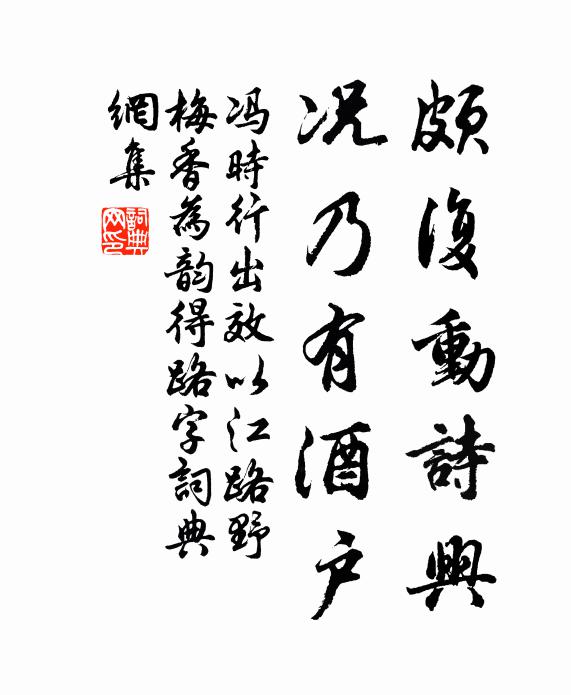 頗復動詩興
况乃有酒户
冯時行出效以江路野
梅香為韵得路字詞典
網集
詞典
网印